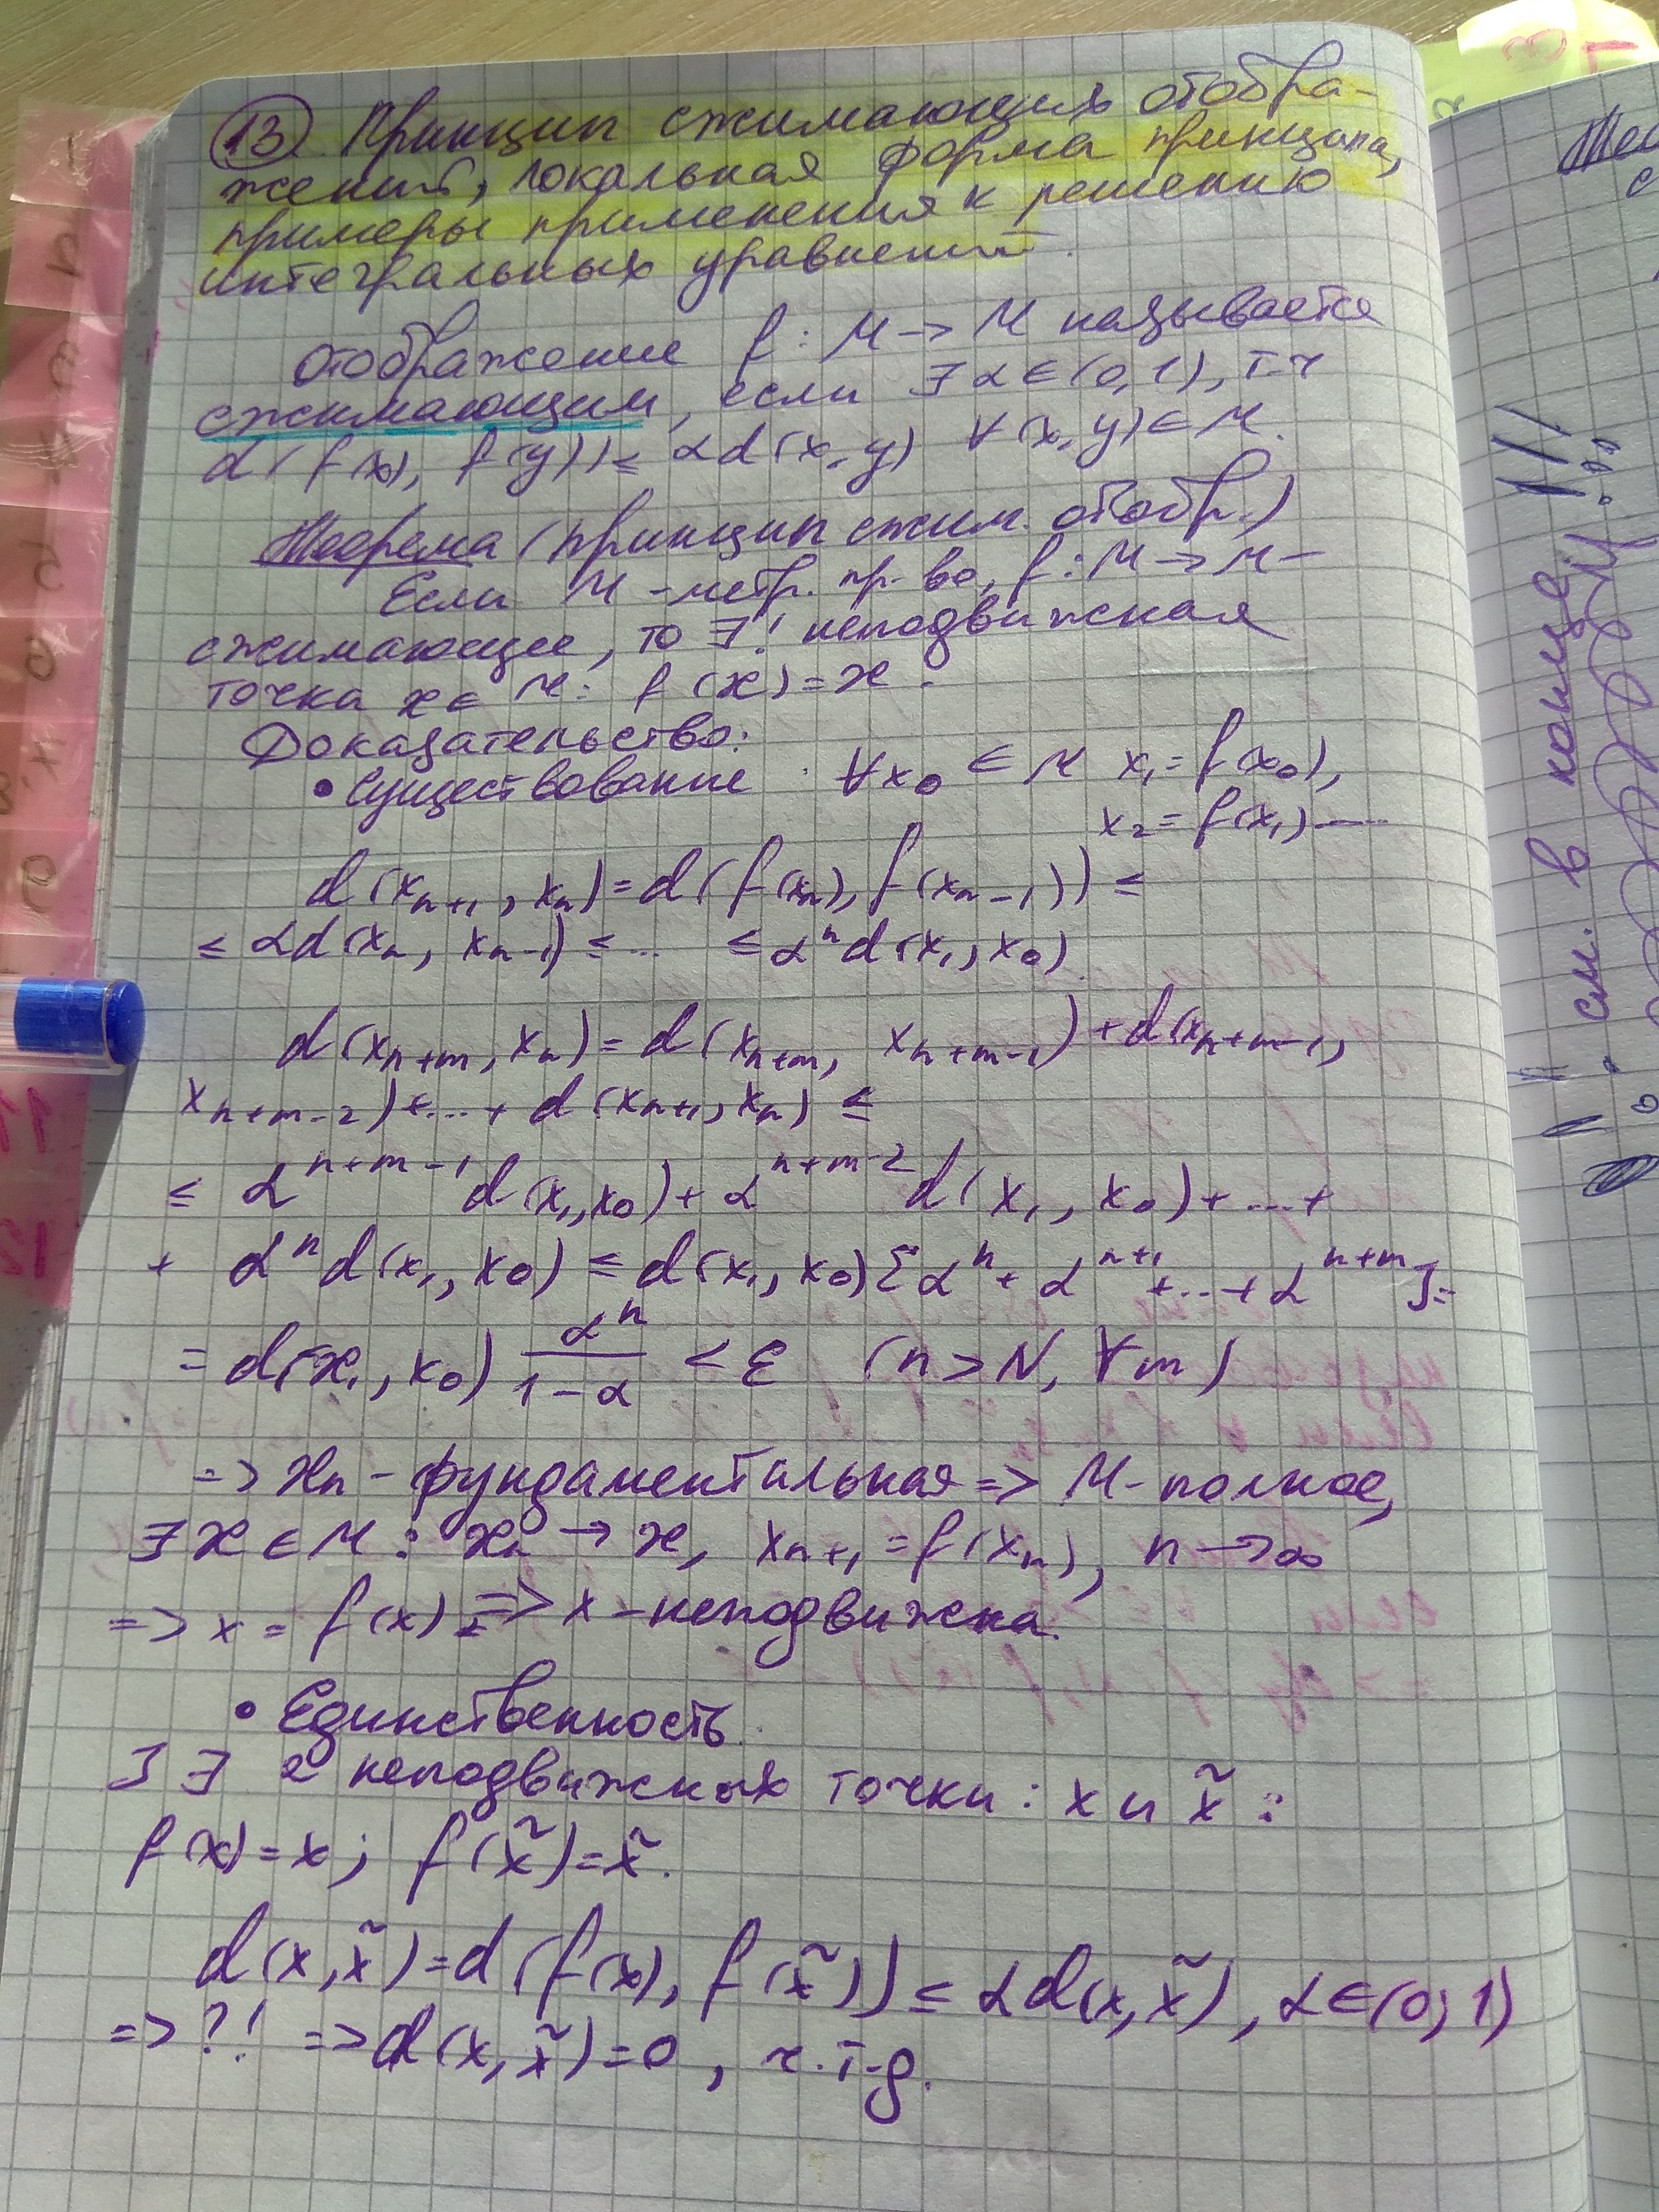 13 Принцип сжимающих отобра-
жений, локальная форма принципа,
примеры применения к решению
интегральных уравнений.
Отображение f: M → M называется
сжимающим, если ∃ α ∈ (0,1), т-ч
d(f(x), f(y)) ≤ αd(x, y) ∀(x, y) ∈ M.
Теорема (принцип сжим. отобр.)
Если M - метр. пр-во, f: M → M -
сжимающее, то ∃! неподвижная
точка x ∈ M: f(x) = x.
Доказательство:
• Существование: ∀x₀ ∈ M x₁ = f(x₀),
x₂ = f(x₁) ....
d(xₙ₊₁, xₙ) = d(f(xₙ), f(xₙ₋₁)) ≤
≤ αd(xₙ, xₙ₋₁) ≤ ... ≤ αⁿd(x₁, x₀).
d(xₙ₊ₘ, xₙ) = d(xₙ₊ₘ, xₙ₊ₘ₋₁) + d(xₙ₊ₘ₋₁,
xₙ₊ₘ₋₂) + ... + d(xₙ₊₁, xₙ) ≤
≤ αⁿ⁺ᵐ⁻¹d(x₁, x₀) + αⁿ⁺ᵐ⁻²d(x₁, x₀) + ... +
+ αⁿd(x₁, x₀) ≤ d(x₁, x₀){αⁿ + αⁿ⁺¹ + ... + αⁿ⁺ᵐ} =
= d(x₁, x₀) αⁿ/(1-α) < ε (n > N, ∀m)
=> xₙ - фундаментальная => M - полное,
∃ x ∈ M: xₙ → x, xₙ₊₁ = f(xₙ), n → ∞
=> x = f(x) => x - неподвижна.
• Единственность.
] ∃ 2 неподвижных точки: x и x̃:
f(x) = x; f(x̃) = x̃.
d(x, x̃) = d(f(x), f(x̃)) ≤ αd(x, x̃), α ∈ (0; 1)
=> ?! => d(x, x̃) = 0, ч.т-д.
см. в конце!
!!!